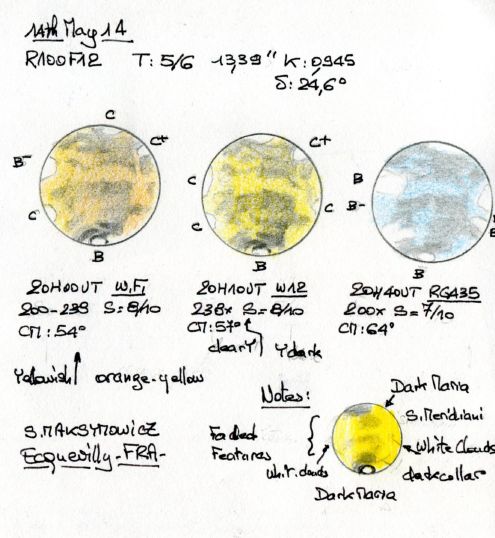 14th May 14
R100F12 T: 5/6 13,39" K: 0945
δ: 24,6°
C
C+
B-
C
B
C+
C
C
C
B
B
B-
B
B
B
20H00UT W.F1
200-238 S=8/10
CM: 54°
20H10UT W12
238x S=8/10
CM: 57°
clear Y Y dark
20H40UT RG435
200x S=7/10
CM: 64°
Yellowish orange-yellow
S. MAKSYMOWICZ
Ecquevilly-FRA-
Notes:
Dark Maria
S. Meridiani
Faded
Features
White Clouds
Wh.Y. clouds
dark collar
Dark Maria